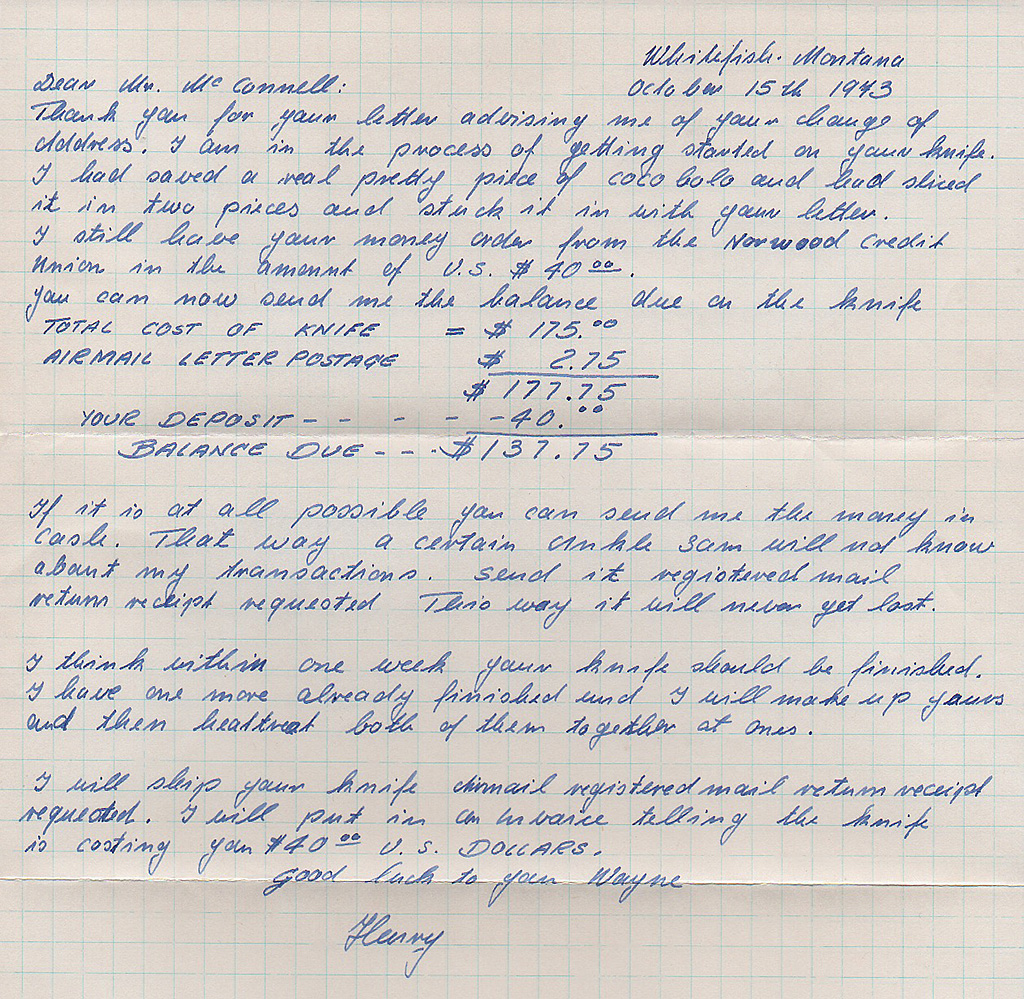 Whitefish. Montana
October 15th 1973
Dear Mr. McConnell:
Thank you for your letter advising me of your change of
address. I am in the process of getting started on your knife.
I had saved a real pretty piece of coco bolo and had sliced
it in two pieces and stuck it in with your letter.
I still have your money order from the Norwood Credit
Union in the amount of U.S. $ 40 00.
you can now send me the balance due on the knife
TOTAL COST OF KNIFE = $ 175.00
AIRMAIL LETTER POSTAGE $ 2.75
$ 177.75
YOUR DEPOSIT - - - - - - 40.00
BALANCE DUE - - - $ 137.75
If it is at all possible you can send me the money in
cash. That way a certain Unkle Sam will not know
about my transactions. Send it registered mail
return receipt requested This way it will never get lost.
I think within one week your knife should be finished.
I have one more already finished und I will make up yours
and then heattreat both of them together at ones.
I will ship your knife airmail registered mail return receipt
requested. I will put in an invoice telling the knife
is costing you $40 00 U.S. DOLLARS.
Good luck to you Wayne
Henry